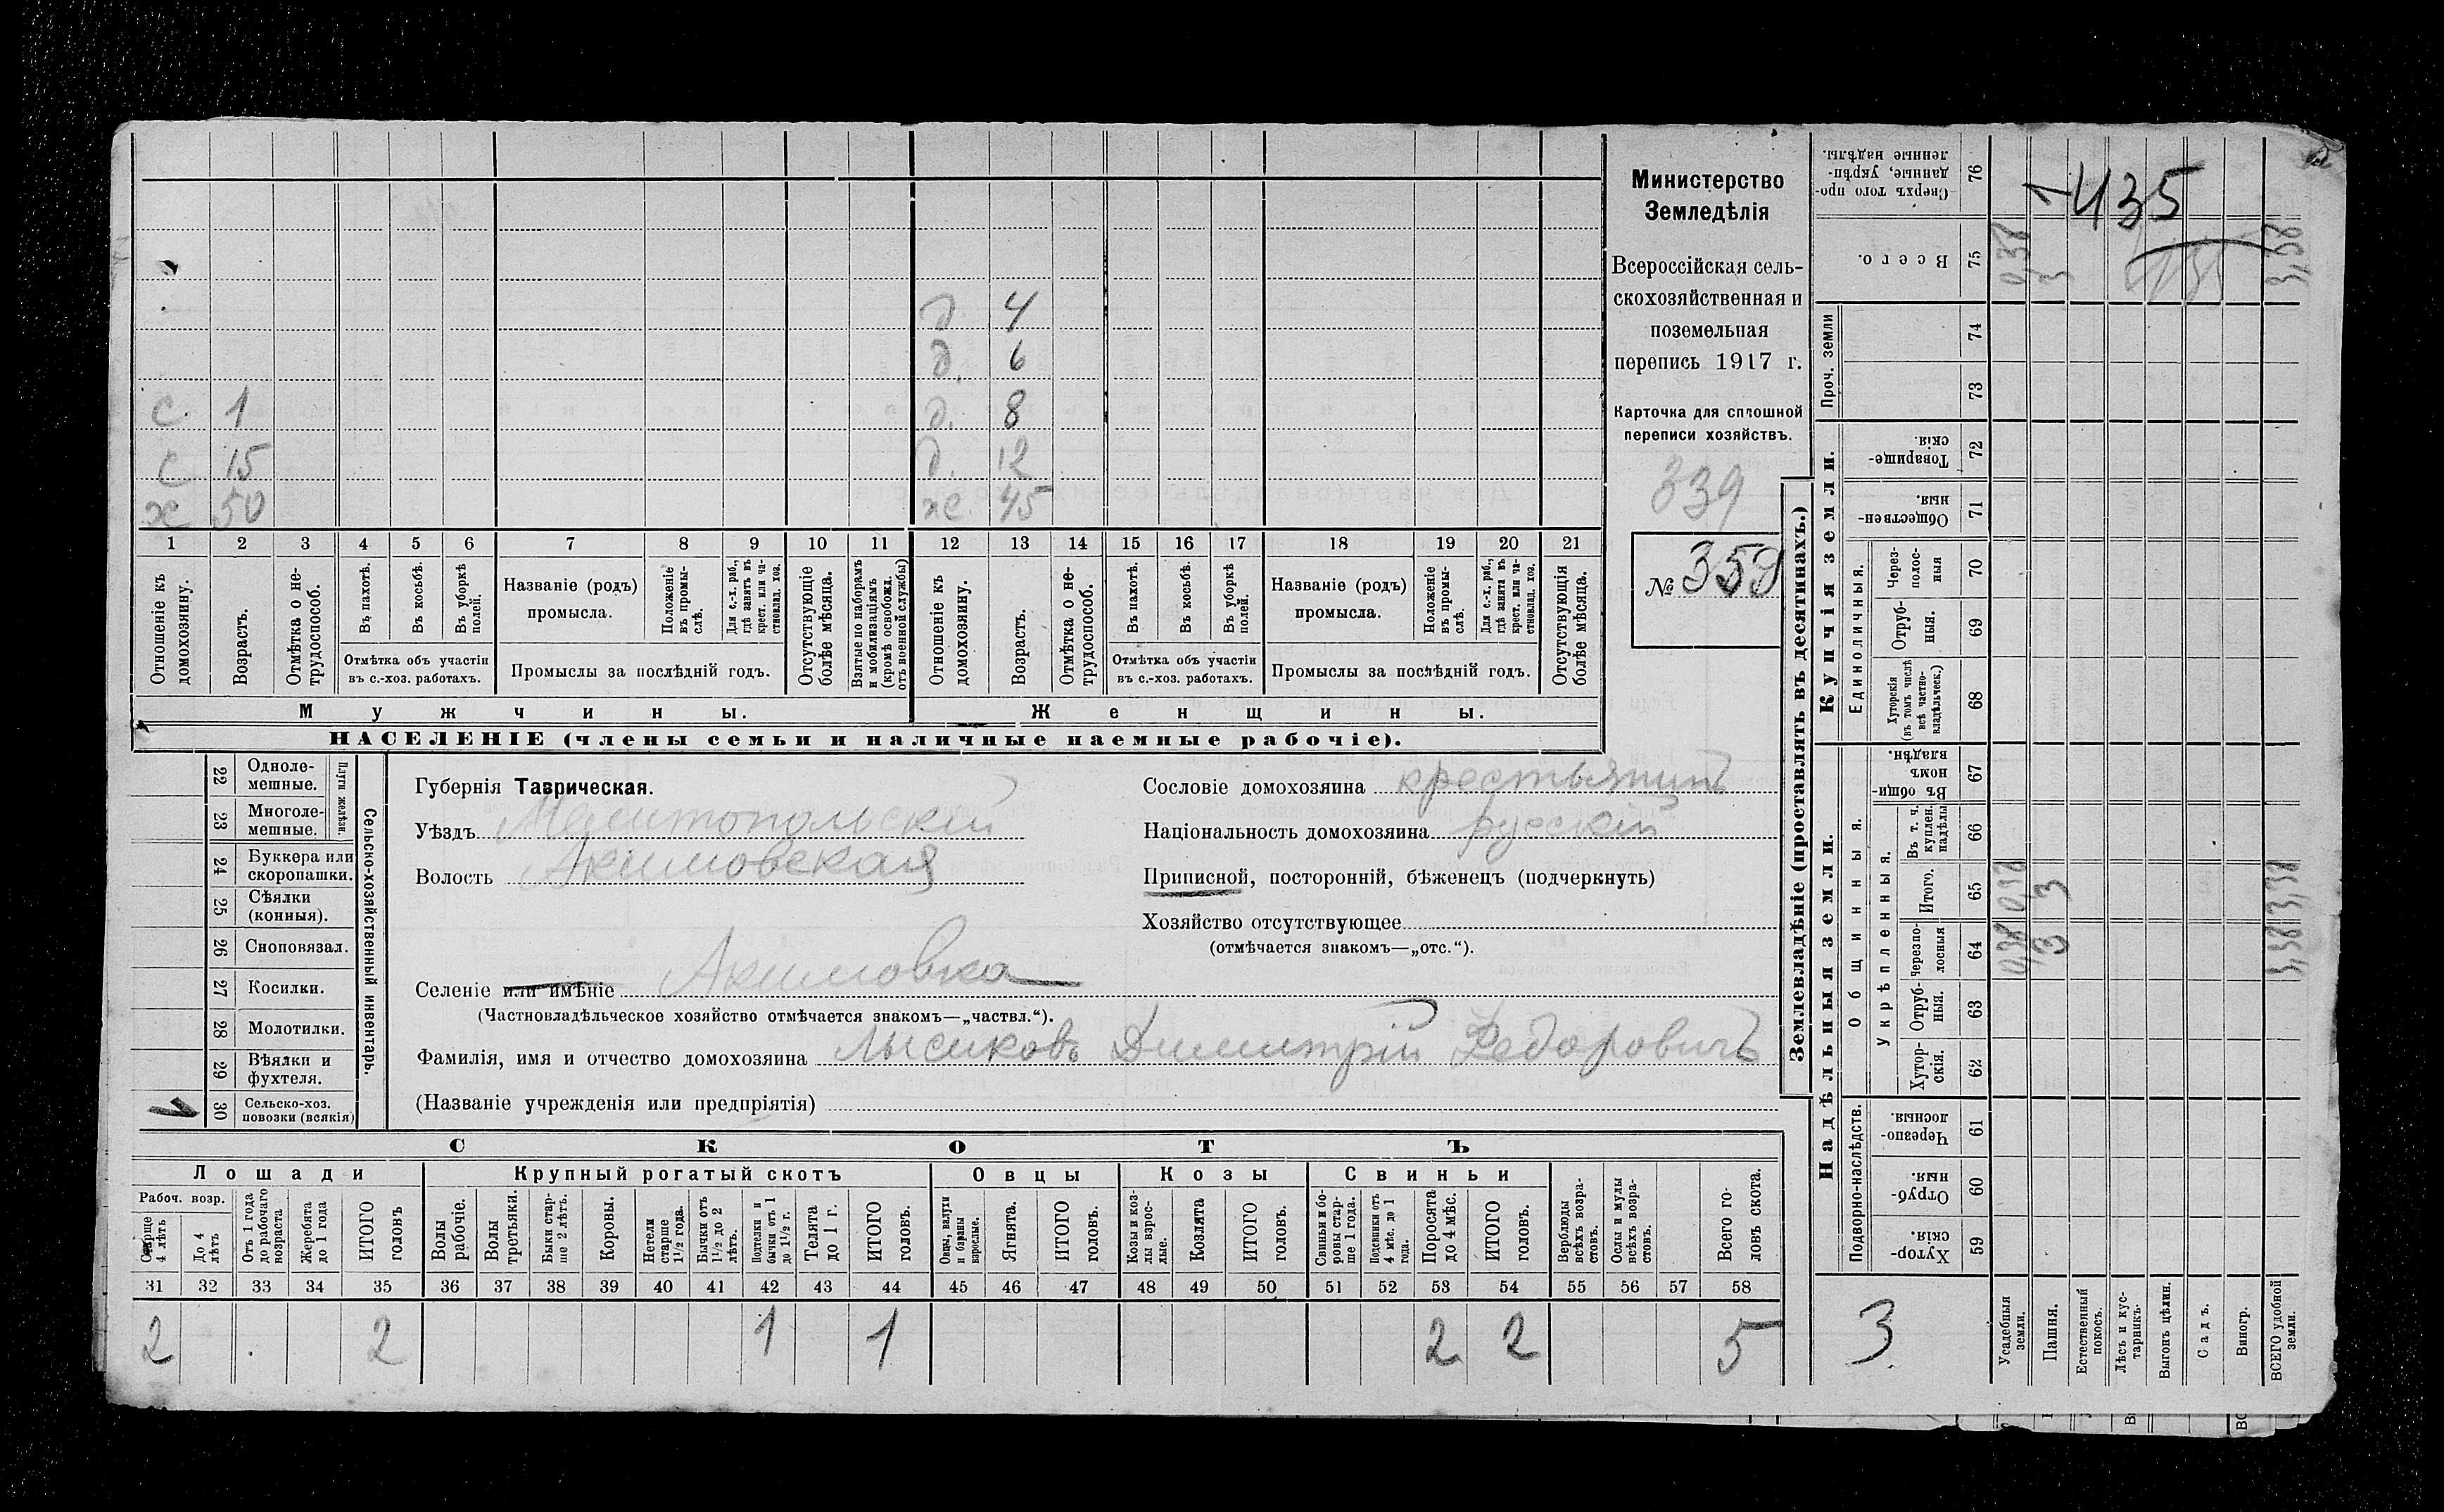 д 4
д. 6
с. 1 д. 8
с 15 д. 12
х 50 ж. 45
1 2 3 4 5 6 7 8 9 10 11 12 13 14 15 16 17 18 19 20 21
Отношеніе къ домохозяину.
Возрастъ.
Отмѣтка о нетрудоспособ.
Въ пахотѣ.
Въ косьбѣ.
Въ уборкѣ полей.
Отмѣтка объ участіи
въ с.-хоз. работахъ.
Названіе (родъ)
промысла.
Положеніе въ промыслѣ.
Для с.-х. раб., гдѣ занятъ въ крест. или частновлад. хоз.
Промыслы за послѣдній годъ.
Отсутствующіе болѣе мѣсяца.
Взятые по наборамъ и мобилизаціямъ (кромѣ освобожд. отъ военной службы)
Отношеніе къ домохозяину.
Возрастъ.
Отмѣтка о нетрудоспособ.
Въ пахотѣ.
Въ косьбѣ.
Въ уборкѣ полей.
Отмѣтка объ участіи
въ с.-хоз. работахъ.
Названіе (родъ)
промысла.
Положеніе въ промыслѣ.
Для с.-х. раб., гдѣ занята въ крест. или частновлад. хоз.
Промыслы за послѣдній годъ.
Отсутствующія болѣе мѣсяца.
Мужчины.
Женщины.
НАСЕЛЕНІЕ (члены семьи и наличные наемные рабочіе).
Министерство
Земледѣлія
Всероссійская сель-
скохозяйственная и
поземельная
перепись 1917 г.
Карточка для сплошной
переписи хозяйствъ.
339
№ 359
Сельско-хозяйственный инвентарь.
Плуги желѣзн.
22 Одноле-
мешные.
23 Многоле-
мешные.
24 Буккера или
скоропашки.
25 Сѣялки
(конныя).
26 Сноповязал.
27 Косилки.
28 Молотилки.
29 Вѣялки и
фухтеля.
1 30 Сельско-хоз.
повозки (всякія)
Губернія Таврическая.
Уѣздъ Мелитопольскій
Волость Акимовская
Селеніе или имѣніе Акимовка
(Частновладѣльческое хозяйство отмѣчается знакомъ—„частвл.“).
Фамилія, имя и отчество домохозяина Лысиковъ Димитрій Федоровичъ
(Названіе учрежденія или предпріятія)
Сословіе домохозяина крестьянинъ
Національность домохозяина русскій
Приписной, посторонній, бѣженецъ (подчеркнуть)
Хозяйство отсутствующее
(отмѣчается знакомъ—„отс.“).
СКОТЪ
Лошади
Крупный рогатый скотъ
Овцы
Козы
Свиньи
Рабоч. возр.
Старше 4 лѣтъ
До 4 лѣтъ
Отъ 1 года до рабочаго возраста
Жеребята до 1 года
ИТОГО головъ
Волы рабочіе.
Волы третьяки.
Быки старше 2 лѣтъ.
Коровы.
Нетели старше 1½ года.
Бычки отъ 1½ до 2 лѣтъ.
Подтелки и бычки отъ 1 до 1½ г.
Телята до 1 г.
ИТОГО головъ.
Овцы, валухи и бараны взрослые.
Ягнята.
ИТОГО головъ.
Козы и козлы взрослые.
Козлята
ИТОГО головъ.
Свиньи и боровы старше 1 года.
Подсвинки отъ 4 мѣс. до 1 года.
Поросята до 4 мѣс.
ИТОГО головъ.
Верблюды всѣхъ возрастовъ.
Ослы и мулы всѣхъ возрастовъ.
Всего головъ скота.
31 32 33 34 35 36 37 38 39 40 41 42 43 44 45 46 47 48 49 50 51 52 53 54 55 56 57 58
2 2 1 1 2 2 5
Землевладѣніе (проставлять въ десятинахъ.)
Сверхъ того проданные, укрѣпленные надѣлы. 76
435
Всего. 75 0,38 3 3,38
Проч. земли
74
73
Купчія земли.
Товарищескія. 72
Общественныя. 71
Единоличныя.
Черезполосныя 70
Отрубныя. 69
Хуторскія (въ томъ числѣ всѣ частновладѣльческ.) 68
Надѣльныя земли.
Общинныя.
Въ общинномъ владѣн. 67
Укрѣпленныя.
Въ т. ч. куплен. надѣлы 66
Итого. 65 0,38 3 3,38
Черезполосныя 64 0,38 3 3,38
Отрубныя. 63
Хуторскія. 62
Подворно-наслѣдств.
Черезполосныя. 61
Отрубныя. 60
Хуторскія. 59
3
Усадебныя земли.
Пашня.
Естественный покосъ.
Лѣсъ и кустарникъ.
Выгонъ цѣлин.
Садъ.
Виногр.
ВСЕГО удобной земли.